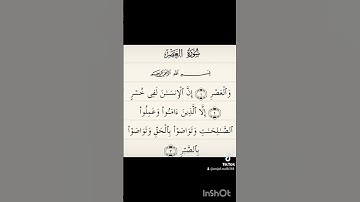 سُورَةُ العَصْرِ
بِسْمِ اللَّهِ الرَّحْمَٰنِ الرَّحِيمِ
وَٱلْعَصْرِ ١ إِنَّ ٱلْإِنسَـٰنَ لَفِى خُسْرٍ
٢ إِلَّا ٱلَّذِينَ ءَامَنُوا۟ وَعَمِلُوا۟
ٱلصَّـٰلِحَـٰتِ وَتَوَاصَوْا۟ بِٱلْحَقِّ وَتَوَاصَوْا۟
بِٱلصَّبْرِ ٣
TikTok
InShOt